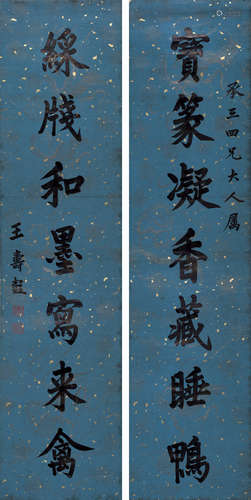 承三四兄大人属
寶篆凝香藏睡鴨
綵牋和墨寫来禽
王壽彭